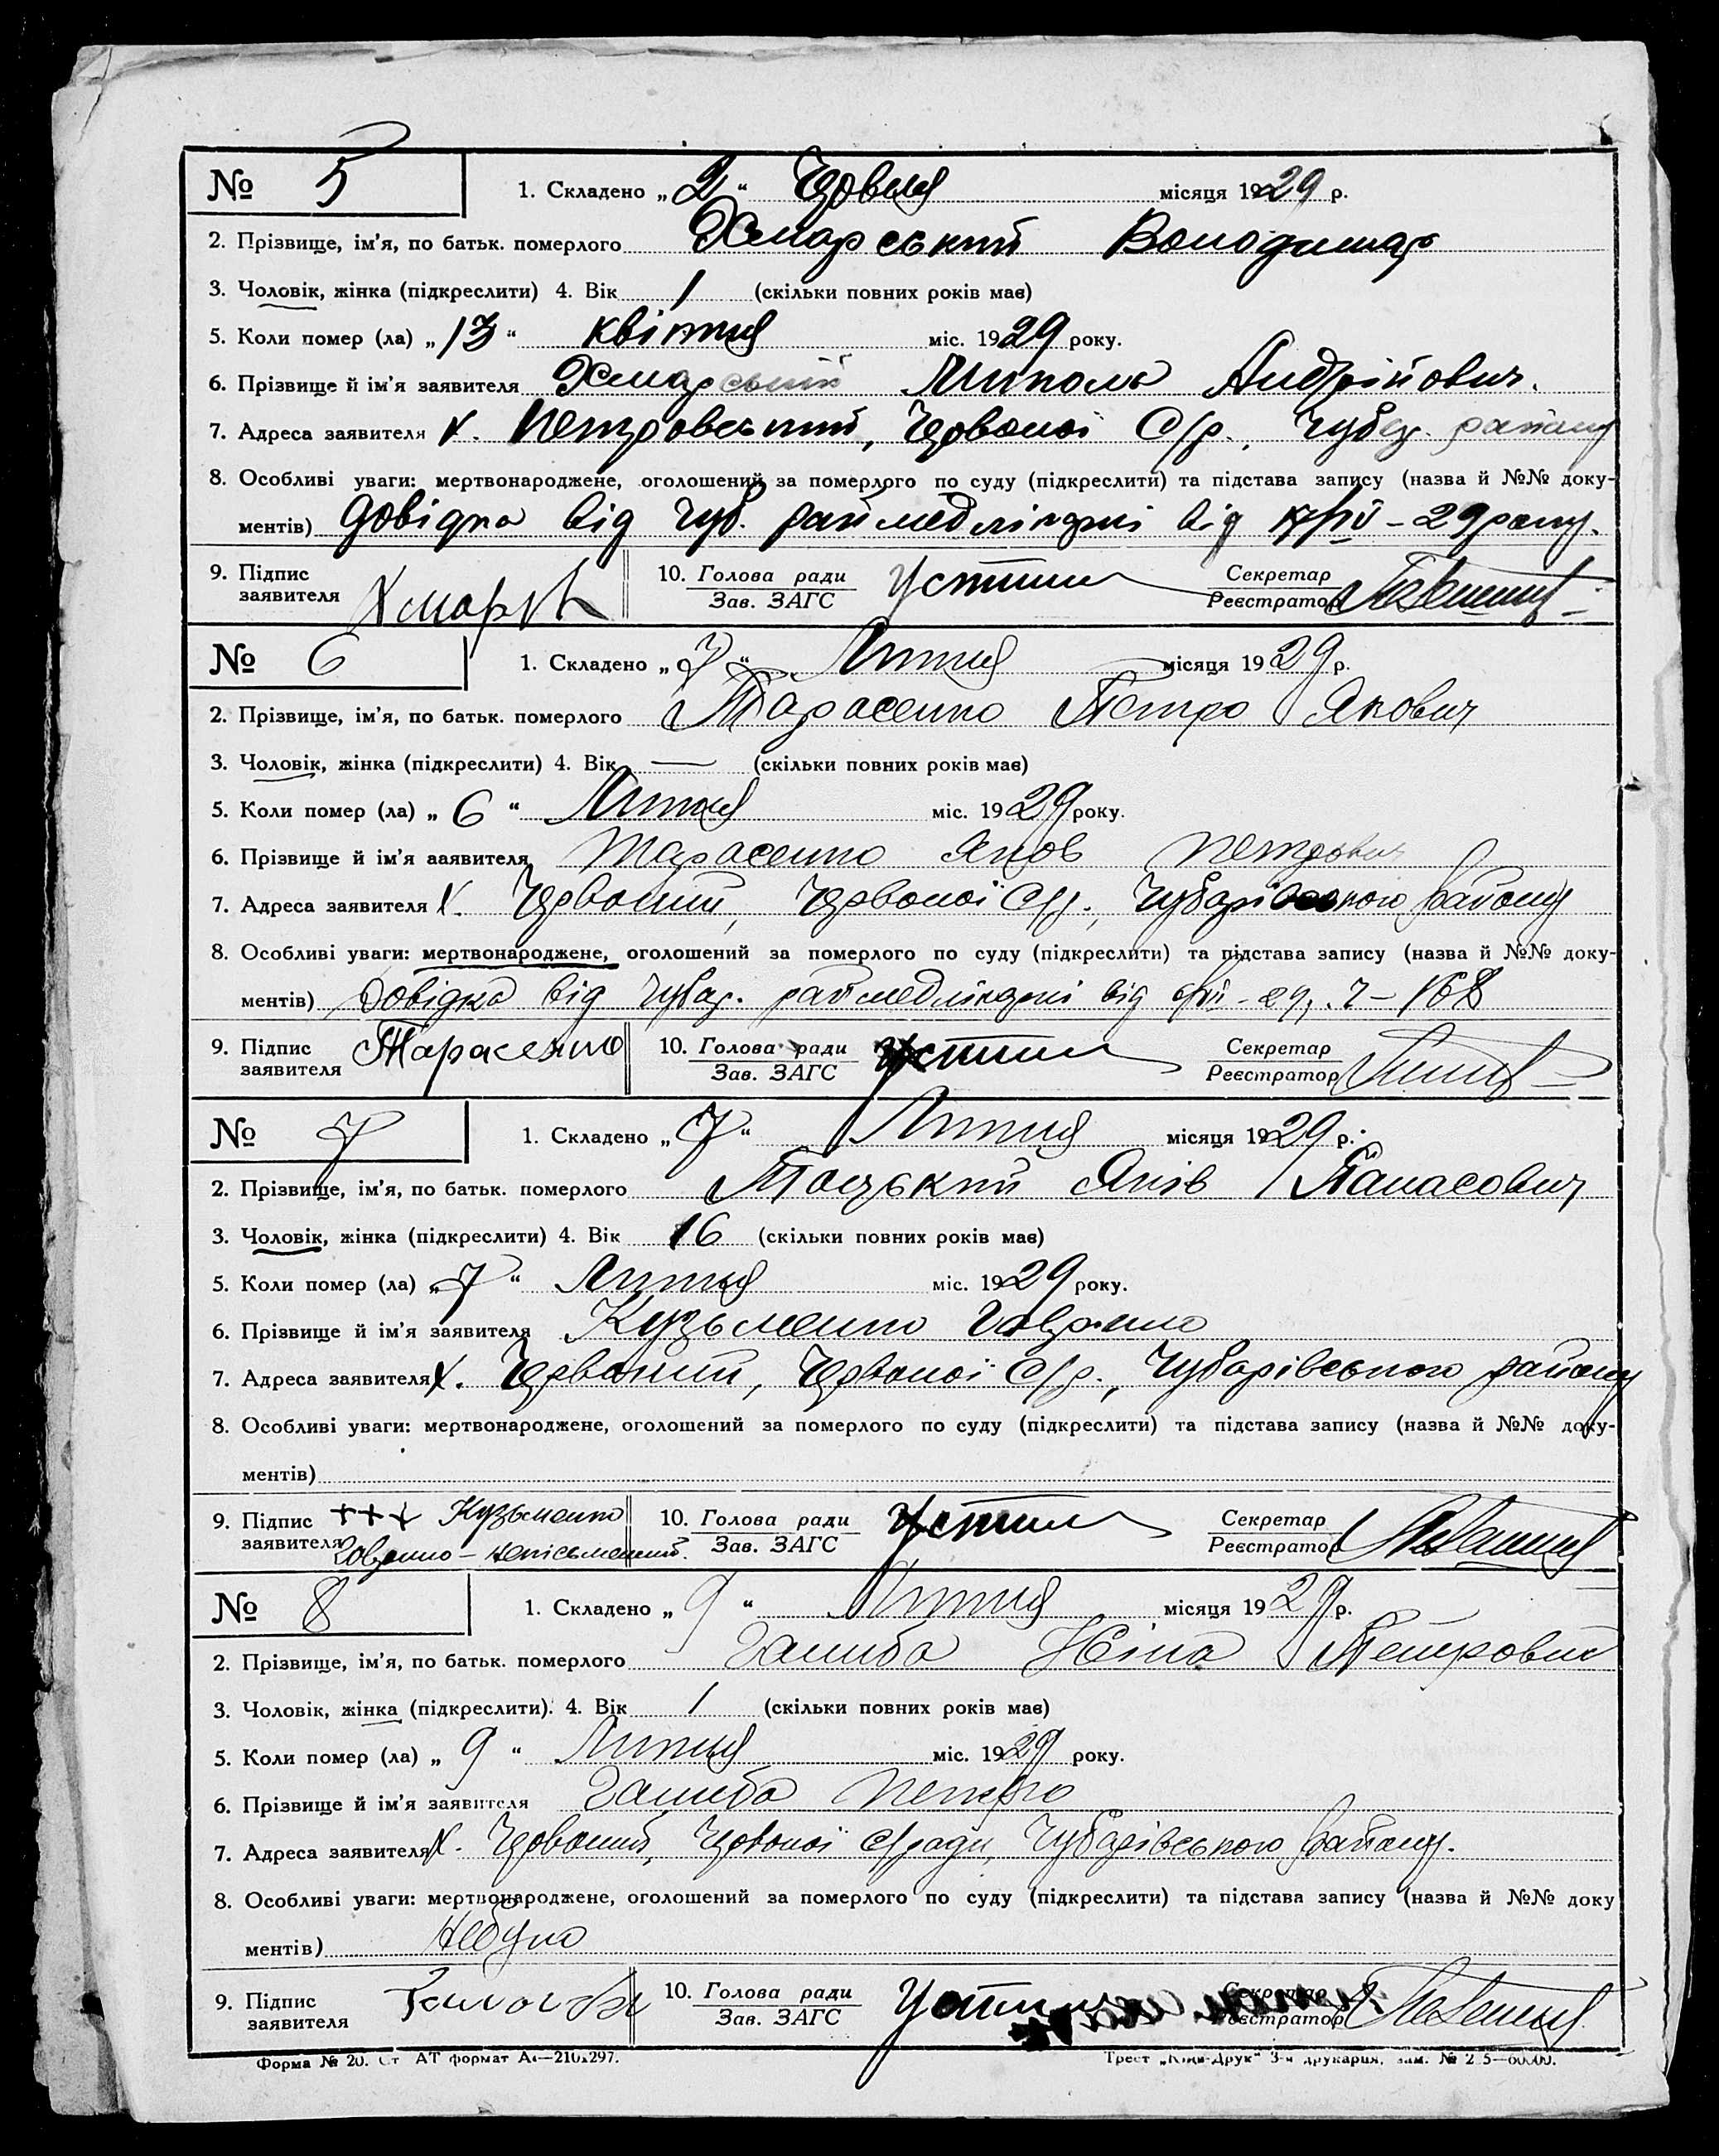 № 5 1. Складено „2“ Червня місяця 1929 р.
2. Прізвище, ім'я, по батьк. померлого Хмарський Володимир
3. Чоловік, жінка (підкреслити) 4. Вік 1 (скільки повних років має)
5. Коли помер (ла) „13“ квітня міс. 1929 року.
6. Прізвище й ім'я заявителя Хмарський Микола Андрійович.
7. Адреса заявителя х. Петровський, Червоної С/р., Чубар. району
8. Особливі уваги: мертвонароджене, оголошений за померлого по суду (підкреслити) та підстава запису (назва й №№ доку-
ментів) Довідка від Чуб. раймедлікарні від IV – 29 року.
9. Підпис 10. Голова ради Секретар
заявителя Зав. ЗАГС Реєстратор
№ 6 1. Складено „7“ Липня місяця 1929 р.
2. Прізвище, ім'я, по батьк. померлого Тарасенко Петро Якович
3. Чоловік, жінка (підкреслити) 4. Вік — (скільки повних років має)
5. Коли помер (ла) „6“ Липня міс. 1929 року.
6. Прізвище й ім'я заявителя Тарасенко Яков Петрович
7. Адреса заявителя х. Червоний, Червоної С/р., Чубарівського району
8. Особливі уваги: мертвонароджене, оголошений за померлого по суду (підкреслити) та підстава запису (назва й №№ доку-
ментів) Довідка від Чубар. раймедлікарні від 6/VII – 29 р. – 168
9. Підпис Тарасенко 10. Голова ради Секретар
заявителя Зав. ЗАГС Реєстратор
№ 7 1. Складено „7“ Липня місяця 1929 р.
2. Прізвище, ім'я, по батьк. померлого Яків Панасович
3. Чоловік, жінка (підкреслити) 4. Вік 16 (скільки повних років має)
5. Коли помер (ла) „7“ Липня міс. 1929 року.
6. Прізвище й ім'я заявителя Кузьменко Гаврило
7. Адреса заявителя х. Червоний, Червоної С/р., Чубарівського району
8. Особливі уваги: мертвонароджене, оголошений за померлого по суду (підкреслити) та підстава запису (назва й №№ доку-
ментів)
9. Підпис +++ Кузьменко 10. Голова ради Секретар
заявителя Гаврило – неписьменний. Зав. ЗАГС Реєстратор
№ 8 1. Складено „9“ Липня місяця 1929 р.
2. Прізвище, ім'я, по батьк. померлого Галиба Ніна Петровна
3. Чоловік, жінка (підкреслити). 4. Вік 1 (скільки повних років має)
5. Коли помер (ла) „9“ Липня міс. 1929 року.
6. Прізвище й ім'я заявителя Галиба Петро
7. Адреса заявителя х. Червоний, Червоної С/ради, Чубарівського району.
8. Особливі уваги: мертвонароджене, оголошений за померлого по суду (підкреслити) та підстава запису (назва й №№ доку
ментів) Не було
9. Підпис 10. Голова ради Секретар
заявителя Зав. ЗАГС Реєстратор
Форма № 20. Ст АТ формат А4—210х297. Трест „Київ-Друк“ 3-я друкарня, зам. №